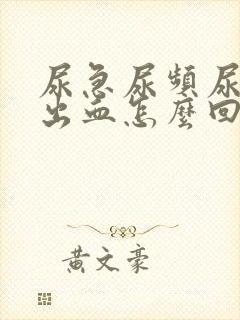 尿急尿頻尿
出血怎麼回
黃文豪